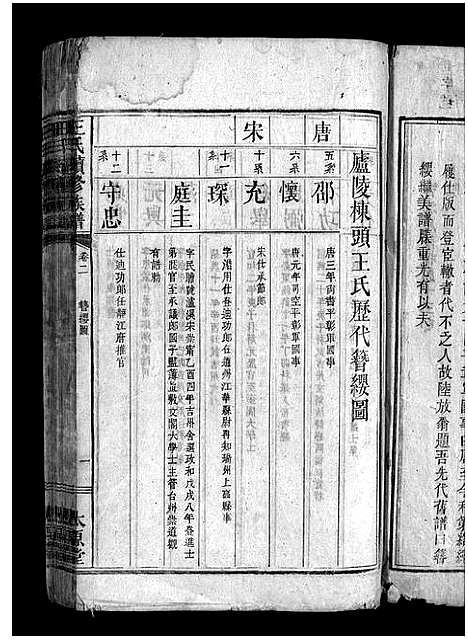 屐仕版而登宦轍者代不乏人故陸放翁題吾先代舊譜曰簪
纓繼美譜牒重光有以夫
廬陵棟頭王氏歷代簪纓圖
唐
五系
邵
唐三年丙
彰軍國事
六系
懷
唐元年司空平彰軍國事
宋
十系
充
宋仕承節郎
十一系
琛
字
用仕登迪功郎在道州江華縣尉再知瑞州上高縣事
庭圭
字民瞻號瀘溪宋崇甯乙酉四年吉州舍選政和戊戌八年登進士
第
官至承議郎國子監簿直敷文閣大學士主管台州崇道觀
有語勑
十二系
守忠
仕迪功郎任靜江府推官
王氏續修族譜
卷二
簪纓圖
一
太原堂